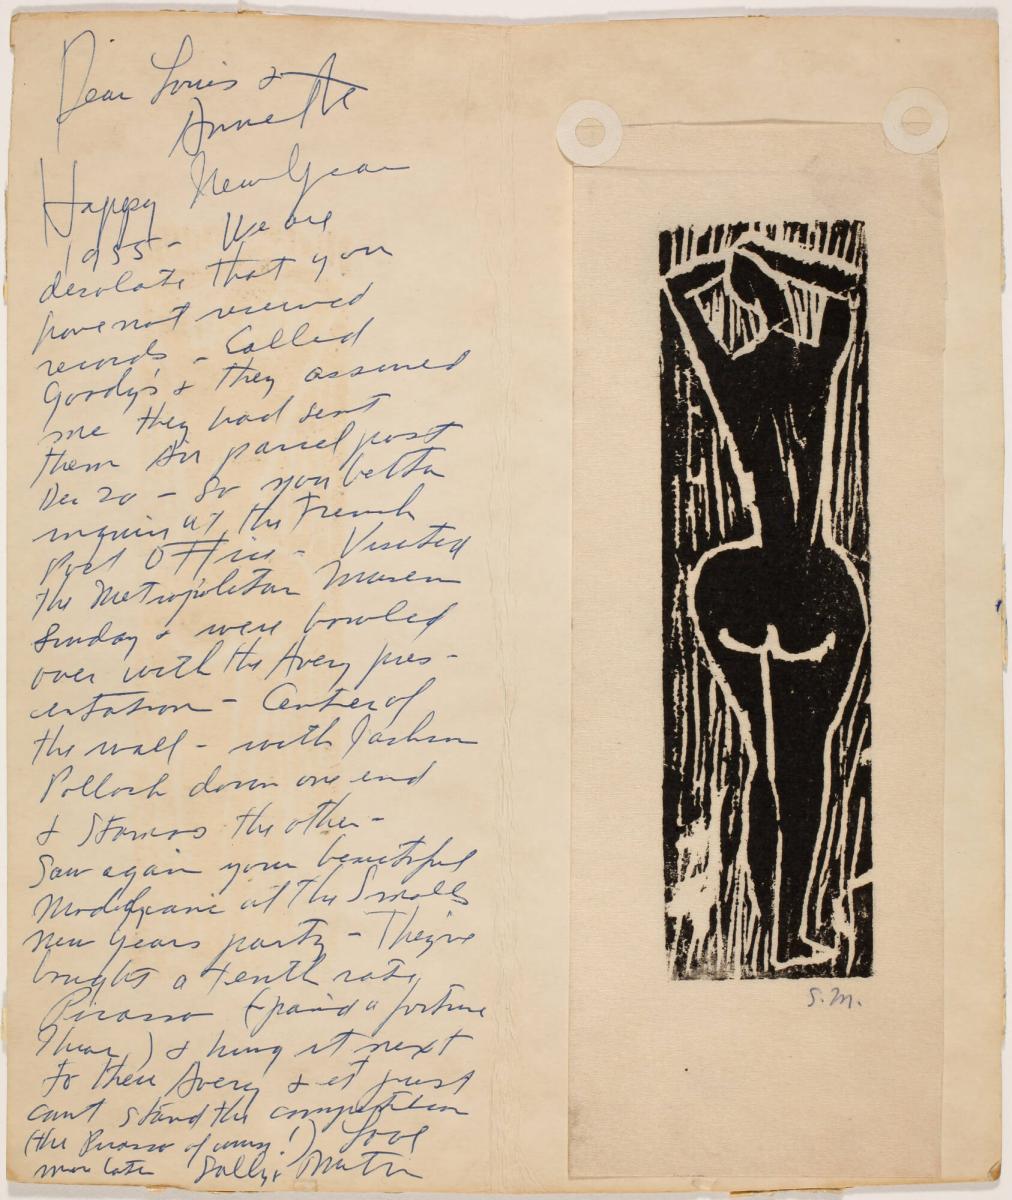 Dear Louis &
Annette
Happy New Year
1955 - We are
desolate that you
have not received
records - Called
Goody's & they assured
me they had sent
them Air parcel post
Dec 20 - So you better
inquire at the French
Post Office - Visited
the Metropolitan Museum
Sunday & were bowled
over with the Avery pres-
entation - Center of
the wall - with Jackson
Pollock down one end
& Stamos the other -
Saw again your beautiful
Modigliani at the Smalls
New Years party - They've
bought a tenth rate
Picasso (& paid a fortune
I hear) & hung it next
to their Avery & it just
cant stand the competition
(the Picasso of course!) Love
more later Sally & Milton
S.M.